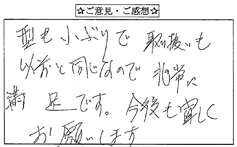 ☆ご意見・ご感想☆
型も小ぶりで 取扱いも
以前と同じなので 非常に
満足です。今後も宜しく
お願いします